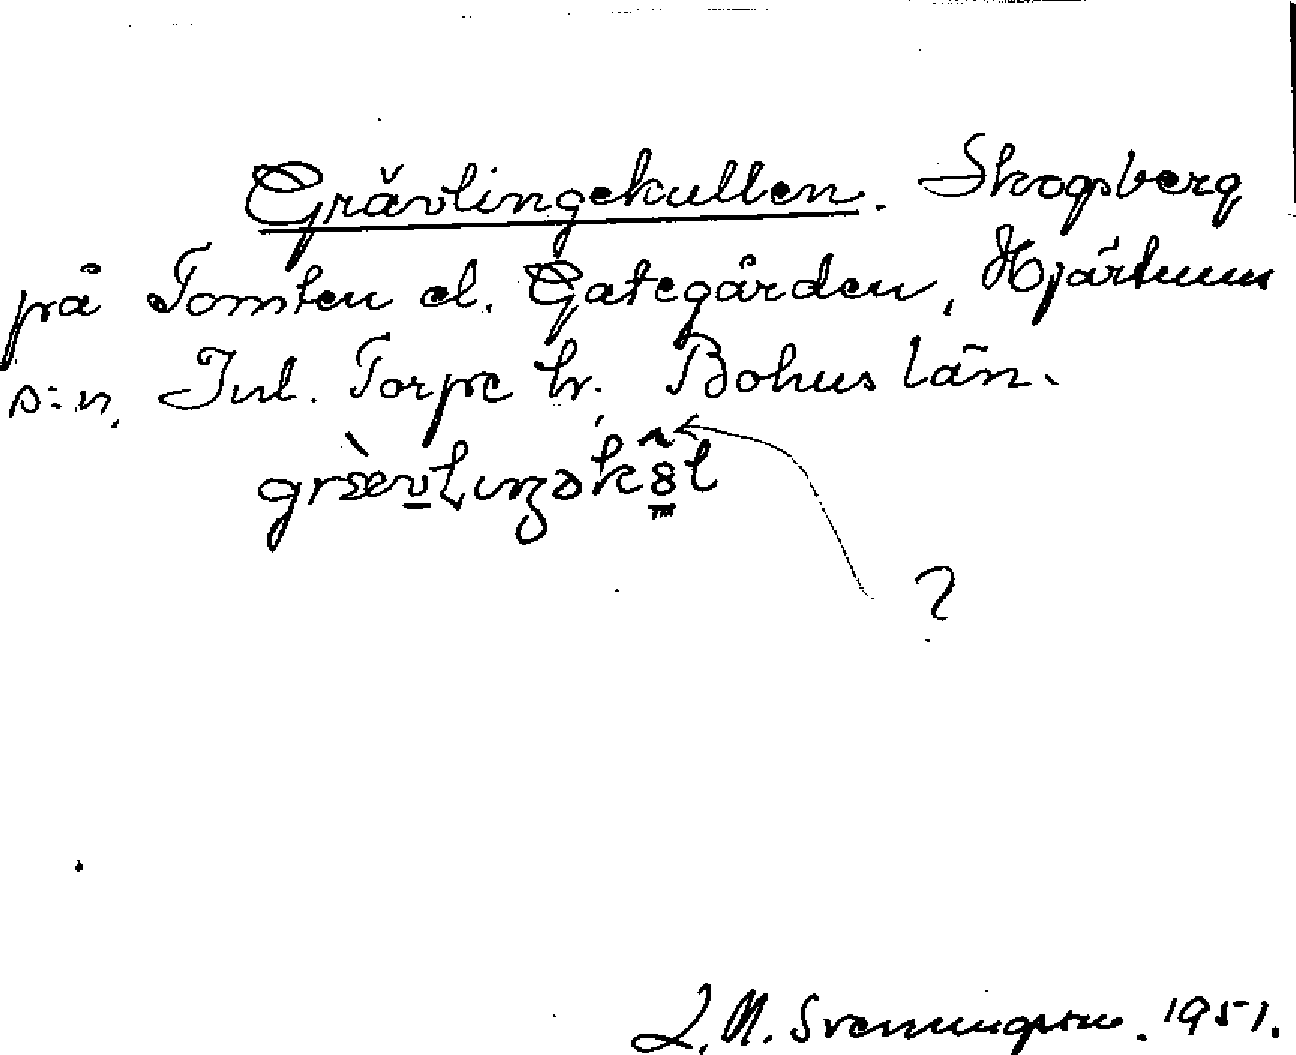 Grävlingekullen. Skogsberg
på Tomten el. Gategården, Hjärtum
s:n, Inl. Torpe hr. Bohus län.
?
L. M. Svenningsson. 1951.